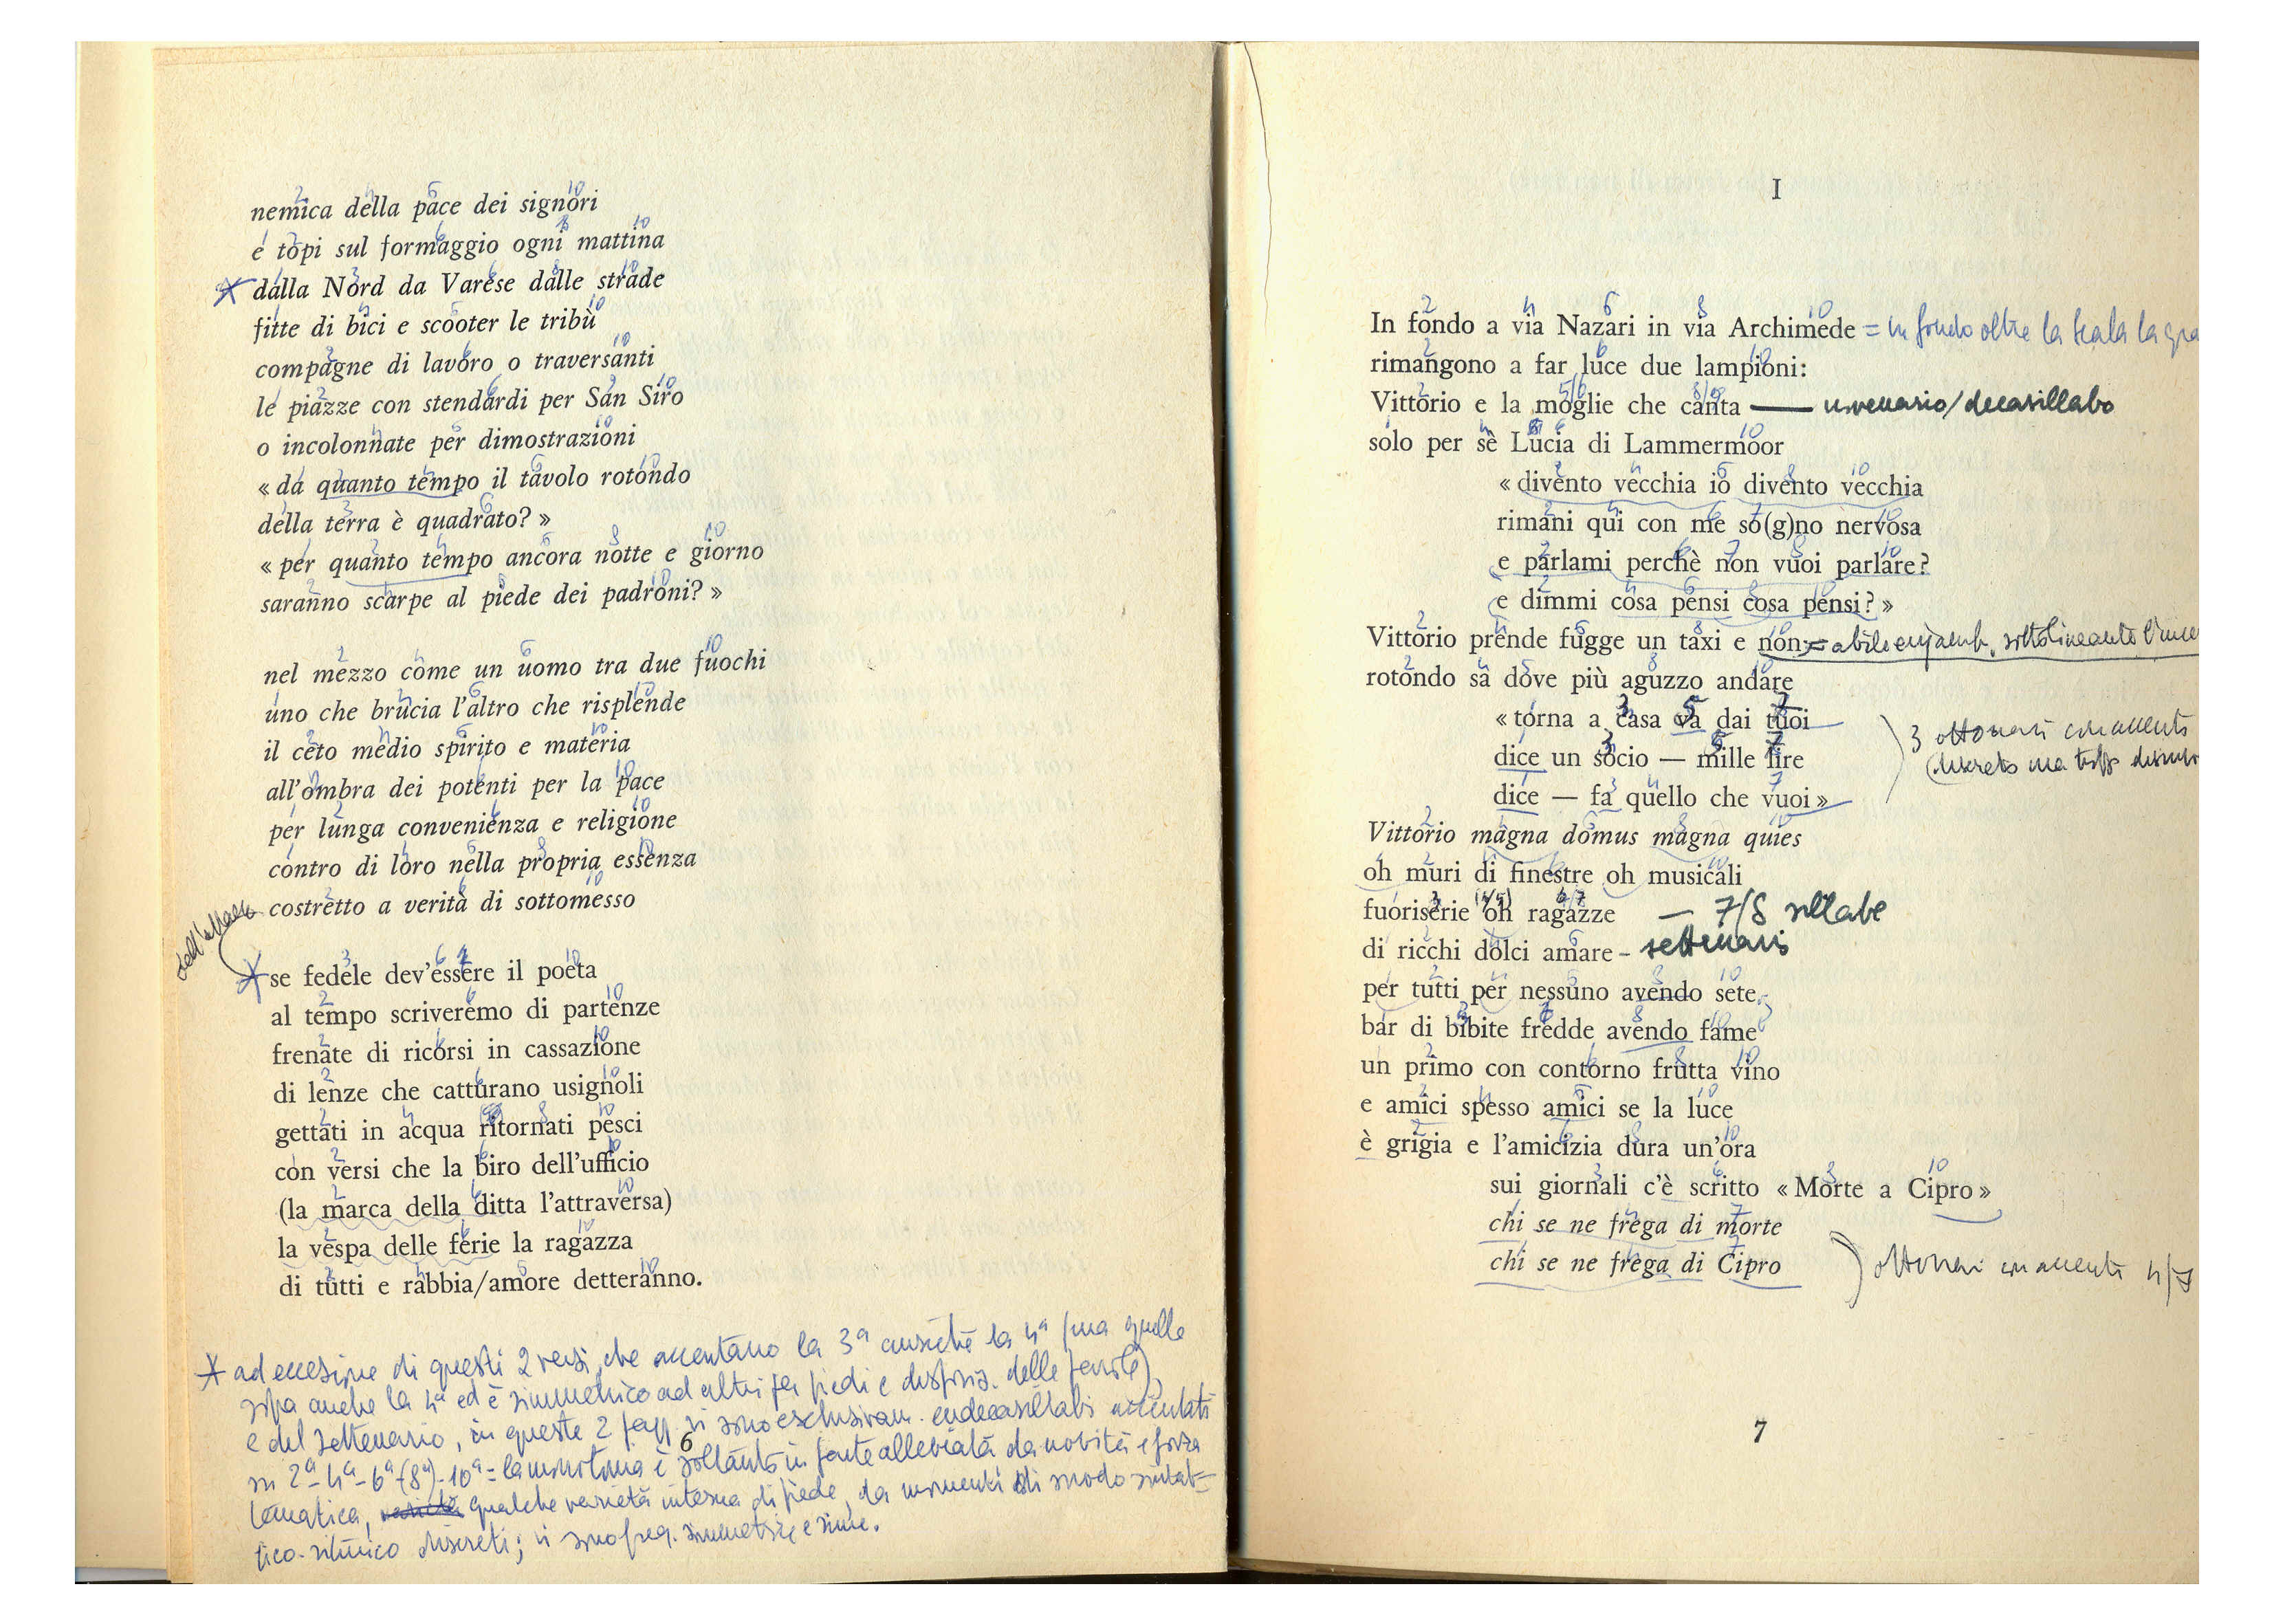 nemica della pace dei signori
e topi sul formaggio ogni mattina
dalla Nord da Varese dalle strade
fitte di bici e scooter le tribù
compagne di lavoro o traversanti
le piazze con stendardi per San Siro
o incolonnate per dimostrazioni
« da quanto tempo il tavolo rotondo
della terra è quadrato? »
« per quanto tempo ancora notte e giorno
saranno scarpe al piede dei padroni? »
nel mezzo come un uomo tra due fuochi
uno che brucia l'altro che risplende
il ceto medio spirito e materia
all'ombra dei potenti per la pace
per lunga convenienza e religione
contro di loro nella propria essenza
costretto a verità di sottomesso
se fedele dev'essere il poeta
al tempo scriveremo di partenze
frenate di ricorsi in cassazione
di lenze che catturano usignoli
gettati in acqua ritornati pesci
con versi che la biro dell'ufficio
(la marca della ditta l'attraversa)
la vespa delle ferie la ragazza
di tutti e rabbia/amore detteranno.
* ad eccezione di questi 2 versi, che accentano la 3ª anziché la 4ª (ma quello
anche la 4ª ed è simmetrico ad altri per piedi e disposiz. delle parole)
e del settenario, in queste 2 pagg. vi sono esclusivam. endecasillabi accentati
su 2ª-4ª-6ª-(8ª)-10ª = la monotonia è soltanto in parte alleviata da novità e forza
tematica, qualche varietà interna di piede, da momenti di snodo sintat-
tico-ritmico discreti; vi sono freq. simmetrie e rime.
I
In fondo a via Nazari in via Archimede = in fondo oltre la scala la
rimangono a far luce due lampioni:
Vittorio e la moglie che canta — novenario/decasillabo
solo per sè Lucia di Lammermoor
« divento vecchia io divento vecchia
rimani qui con me so(g)no nervosa
e parlami perchè non vuoi parlare?
e dimmi cosa pensi cosa pensi? »
Vittorio prende fugge un taxi e non = abile enjamb. sottolineante
rotondo sa dove più aguzzo andare
« torna a casa va dai tuoi
dice un socio — mille lire
dice — fa quello che vuoi »
3 ottonari con accenti
discreto ma
Vittorio magna domus magna quies
oh muri di finestre oh musicali
fuoriserie oh ragazze — 7/8 sillabe
di ricchi dolci amare - settenario
per tutti per nessuno avendo sete
bar di bibite fredde avendo fame
un primo con contorno frutta vino
e amici spesso amici se la luce
è grigia e l'amicizia dura un'ora
sui giornali c'è scritto « Morte a Cipro »
chi se ne frega di morte
chi se ne frega di Cipro
ottonari con accenti 4/7
7